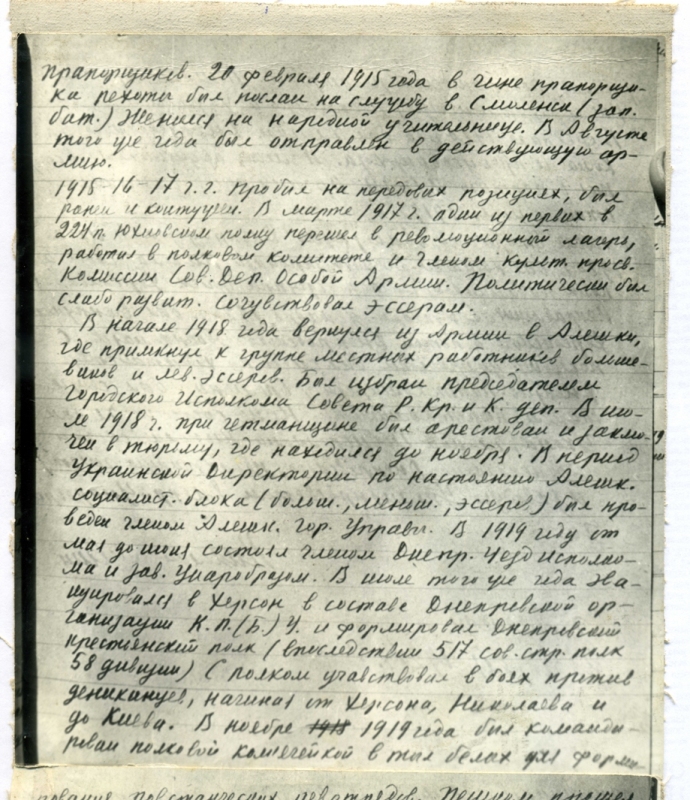 прапорщиков. 20 февраля 1915 года в чине прапорщи-
ка пехоты был послан на службу в Смоленск (зап.
бат.) Женился на народной учительнице. В Августе
того же года был отправлен в действующую ар-
мию.
1915-16-17 г.г. пробыл на передовых позициях, был
ранен и контужен. В марте 1917 г. один из первых в
224 п. Юхновском полку перешел в революционный лагерь,
работал в полковом комитете и членом культ. просв.
Комиссии Сов. Деп. Особой Армии. Политически был
слабо развит. Сочувствовал эссерам.
В начале 1918 года вернулся из Армии в Алешки,
где примкнул к группе местных работников больше-
виков и лев. эссеров. Был избран председателем
Городского Исполкома Совета Р. Кр. и К. деп. В ию-
ле 1918 г. при гетманщине был арестован и заклю-
чен в тюрьму, где находился до ноября. В период
Украинской Директории по настоянию Алешк.
социалист. блока (больш., меньш., эссеров) был про-
веден членом Алешк. гор. Управы. В 1919 году от
мая до июня состоял членом Днепр. Уезд исполко-
ма и зав. Унаробразом. В июле того же года Эва-
куировался в Херсон в составе Днепровской ор-
ганизации К.П.(б.)У. и формировал Днепровский
крестьянский полк (впоследствии 517 сов. стр. полк
58 дивизии) С полком учавствовал в боях против
деникинцев, начиная от Херсона, Николаева и
до Киева. В ноябре 1918 1919 года был команди-
рован полковой комячейкой в тыл белых для форми-
рование повстанческих ревотрядов. Пешком прошел